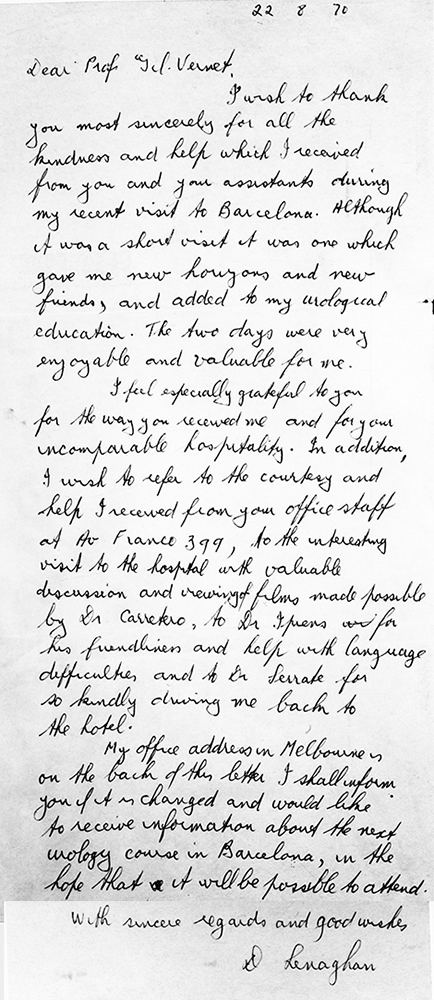 22 8 70
Dear Prof Gil. Vernet,
I wish to thank
you most sincerely for all the
kindness and help which I received
from you and your assistants during
my recent visit to Barcelona. Although
it was a short visit it was one which
gave me new horizons and new
friends, and added to my urological
education. The two days were very
enjoyable and valuable for me.
I feel especially grateful to you
for the way you received me and for your
incomparable hospitality. In addition,
I wish to refer to the courtesy and
help I received from your office staff
at Av Franco 399, to the interesting
visit to the hospital with valuable
discussion and viewing of films made possible
by Dr Carretero, to Dr for
his friendliness and help with language
difficulties and to Dr Serrate for
so kindly driving me back to
the hotel.
My office address in Melbourne is
on the back of this letter I shall inform
you if it is changed and would like
to receive information about the next
urology course in Barcelona, in the
hope that it will be possible to attend.
With sincere regards and good wishes
D Lenaghan